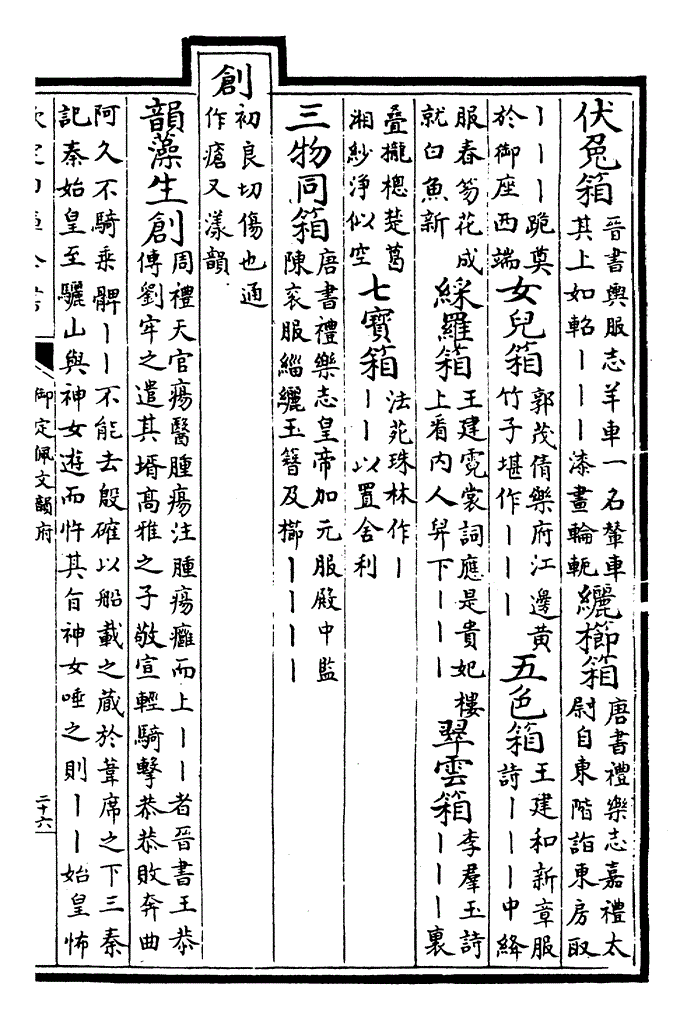 伏兔箱晉書輿服志羊車一名輦車
其上如軺丨丨丨漆畫輪軛
纚櫛箱唐書禮樂志嘉禮太
尉自東階詣東房取
丨丨丨跪奠
於御座西端
女兒箱郭茂倩樂府江邊黄
竹子堪作丨丨丨
五色箱王建和新章服
詩丨丨丨中絳
服春笏花成
就白魚新
綵羅箱王建霓裳詞應是貴妃樓
上看内人舁下丨丨丨
翠雲箱李羣玉詩
丨丨丨裏
疊攏樬楚葛
湘紗浄似空
七寶箱法苑珠林作丨
丨丨以置舍利
三物同箱唐書禮樂志皇帝加元服殿中監
陳衮服緇纚玉簪及櫛丨丨丨丨
創初良切傷也通
作瘡又漾韻
韻藻生創周禮天官瘍醫腫瘍注腫瘍癰而上丨丨者晉書王恭
傳劉牢之遣其壻高雅之子敬宣輕騎擊恭恭敗奔曲
阿久不騎乘髀丨丨不能去殷確以船載之蔵於葦席之下三秦
記秦始皇至驪山與神女遊而忤其旨神女唾之則丨丨始皇怖
御定佩文韻府
二十六